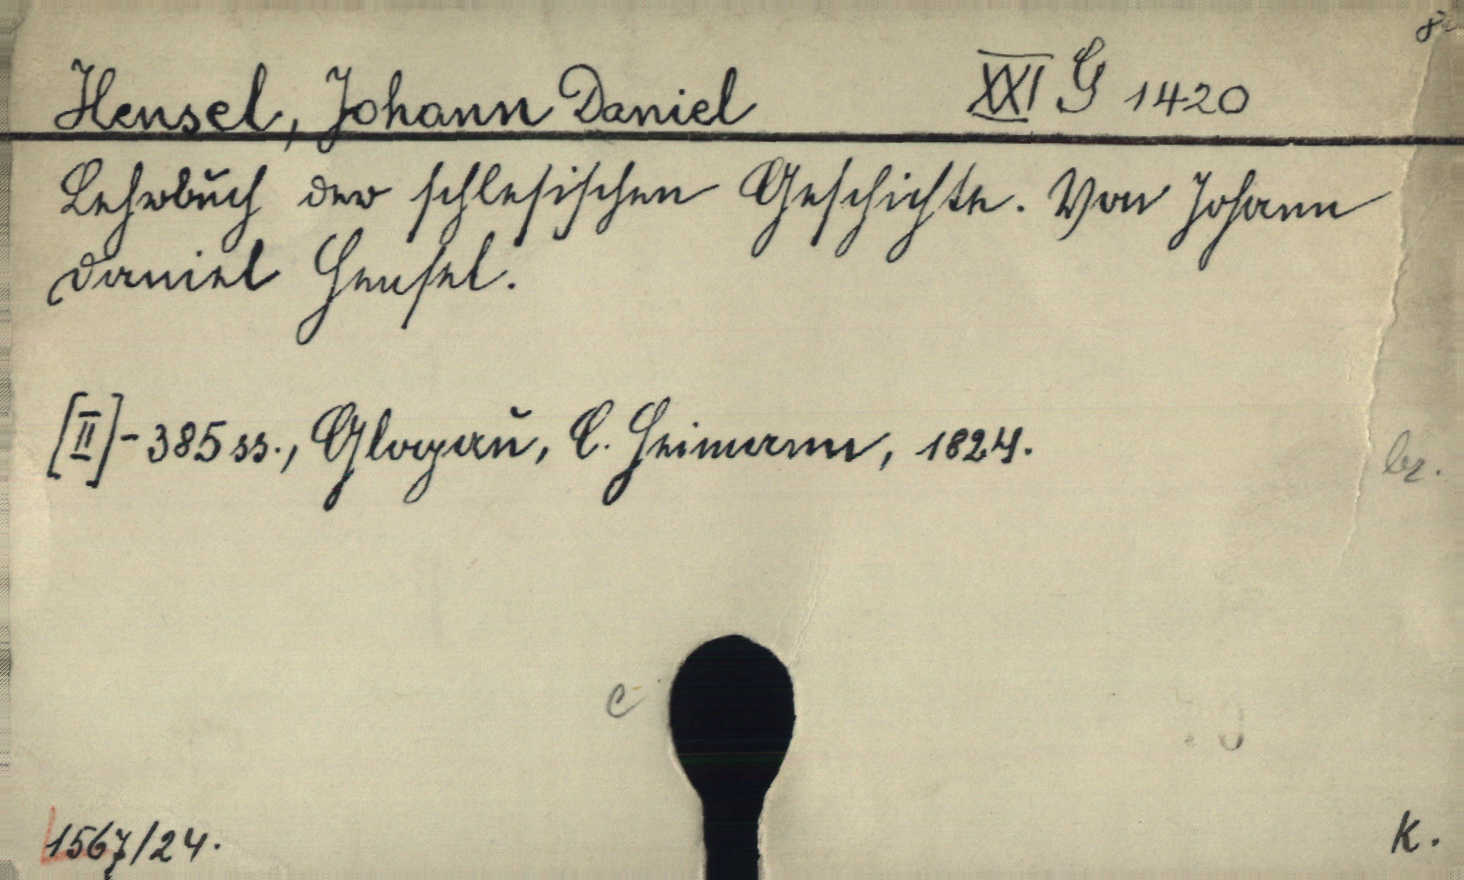 8°
Hensel, Johann Daniel XXI G 1420
Lehrbuch der schlesischen Geschichte. Von Johann
Daniel Hensel.
[II]-385 ss., Glogau, C. Heimann, 1824.
br.
c
1567/24.
K.